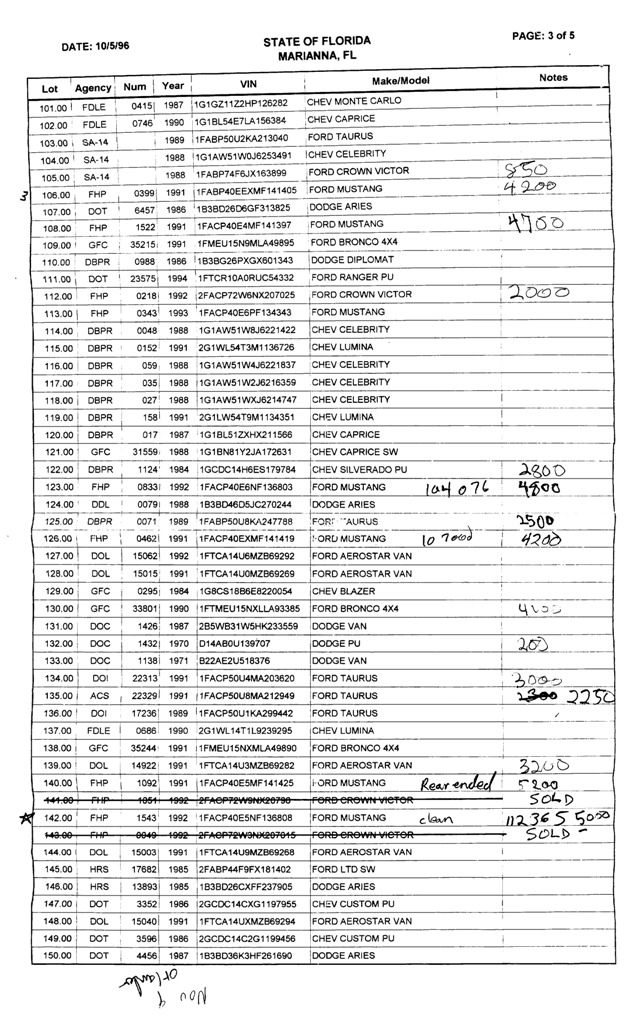 DATE: 10/5/96 STATE OF FLORIDA PAGE: 3 of 5
MARIANNA, FL
Lot Agency Num Year VIN Make/Model Notes
101.00 FDLE 0415 1987 1G1GZ11Z2HP126282 CHEV MONTE CARLO
102.00 FDLE 0746 1990 1G1BL54E7LA156384 CHEV CAPRICE
103.00 SA-14 1989 1FABP50U2KA213040 FORD TAURUS
104.00 SA-14 1988 1G1AW51W0J6253491 CHEV CELEBRITY
105.00 SA-14 1988 1FABP74F6JX163899 FORD CROWN VICTOR 850
3 106.00 FHP 0399 1991 1FABP40EEXMF141405 FORD MUSTANG 4200
107.00 DOT 6457 1986 1B3BD26D6GF313825 DODGE ARIES
108.00 FHP 1522 1991 1FACP40E4MF141397 FORD MUSTANG 4700
109.00 GFC 35215 1991 1FMEU15N9MLA49895 FORD BRONCO 4X4
110.00 DBPR 0988 1986 1B3BG26PXGX601343 DODGE DIPLOMAT
111.00 DOT 23575 1994 1FTCR10A0RUC54332 FORD RANGER PU
112.00 FHP 0218 1992 2FACP72W6NX207025 FORD CROWN VICTOR 2000
113.00 FHP 0343 1993 1FACP40E6PF134343 FORD MUSTANG
114.00 DBPR 0048 1988 1G1AW51W8J6221422 CHEV CELEBRITY
115.00 DBPR 0152 1991 2G1WL54T3M1136726 CHEV LUMINA
116.00 DBPR 059 1988 1G1AW51W4J6221837 CHEV CELEBRITY
117.00 DBPR 035 1988 1G1AW51W2J6216359 CHEV CELEBRITY
118.00 DBPR 027 1988 1G1AW51WXJ6214747 CHEV CELEBRITY
119.00 DBPR 158 1991 2G1LW54T9M1134351 CHEV LUMINA
120.00 DBPR 017 1987 1G1BL51ZXHX211566 CHEV CAPRICE
121.00 GFC 31559 1988 1G1BN81Y2JA172631 CHEV CAPRICE SW
122.00 DBPR 1124 1984 1GCDC14H6ES179784 CHEV SILVERADO PU 2800
123.00 FHP 0833 1992 1FACP40E6NF136803 FORD MUSTANG 104 076 4800
124.00 DDL 0079 1988 1B3BD46D5JC270244 DODGE ARIES
125.00 DBPR 0071 1989 1FABP50U8KA247788 FORD TAURUS 2500
126.00 FHP 0462 1991 1FACP40EXMF141419 FORD MUSTANG 107000 4200
127.00 DOL 15062 1992 1FTCA14U6MZB69292 FORD AEROSTAR VAN
128.00 DOL 15015 1991 1FTCA14U0MZB69269 FORD AEROSTAR VAN
129.00 GFC 0295 1984 1G8CS18B6E8220054 CHEV BLAZER
130.00 GFC 33801 1990 1FTMEU15NXLLA93385 FORD BRONCO 4X4
131.00 DOC 1426 1987 2B5WB31W5HK233559 DODGE VAN
132.00 DOC 1432 1970 D14AB0U139707 DODGE PU 200
133.00 DOC 1138 1971 B22AE2U518376 DODGE VAN
134.00 DOI 22313 1991 1FACP50U4MA203620 FORD TAURUS 3000
135.00 ACS 22329 1991 1FACP50U8MA212949 FORD TAURUS 2300 2250
136.00 DOI 17236 1989 1FACP50U1KA299442 FORD TAURUS
137.00 FDLE 0686 1990 2G1WL14T1L9239295 CHEV LUMINA
138.00 GFC 35244 1991 1FMEU15NXMLA49890 FORD BRONCO 4X4
139.00 DOL 14922 1991 1FTCA14U3MZB69282 FORD AEROSTAR VAN 3200
140.00 FHP 1092 1991 1FACP40E5MF141425 FORD MUSTANG Rear ended 5200
141.00 FHP 1051 1992 2FACP72W9NX20798 FORD CROWN VICTOR SOLD
142.00 FHP 1543 1992 1FACP40E5NF136808 FORD MUSTANG clean 112365 5000
143.00 FHP 0949 1992 2FACP72W3NX207015 FORD CROWN VICTOR SOLD
144.00 DOL 15003 1991 1FTCA14U9MZB69268 FORD AEROSTAR VAN
145.00 HRS 17682 1985 2FABP44F9FX181402 FORD LTD SW
146.00 HRS 13893 1985 1B3BD26CXFF237905 DODGE ARIES
147.00 DOT 3352 1986 2GCDC14CXG1197955 CHEV CUSTOM PU
148.00 DOL 15040 1991 1FTCA14UXMZB69294 FORD AEROSTAR VAN
149.00 DOT 3596 1986 2GCDC14C2G1199456 CHEV CUSTOM PU
150.00 DOT 4456 1987 1B3BD36K3HF261690 DODGE ARIES
Nov 9
Orlando